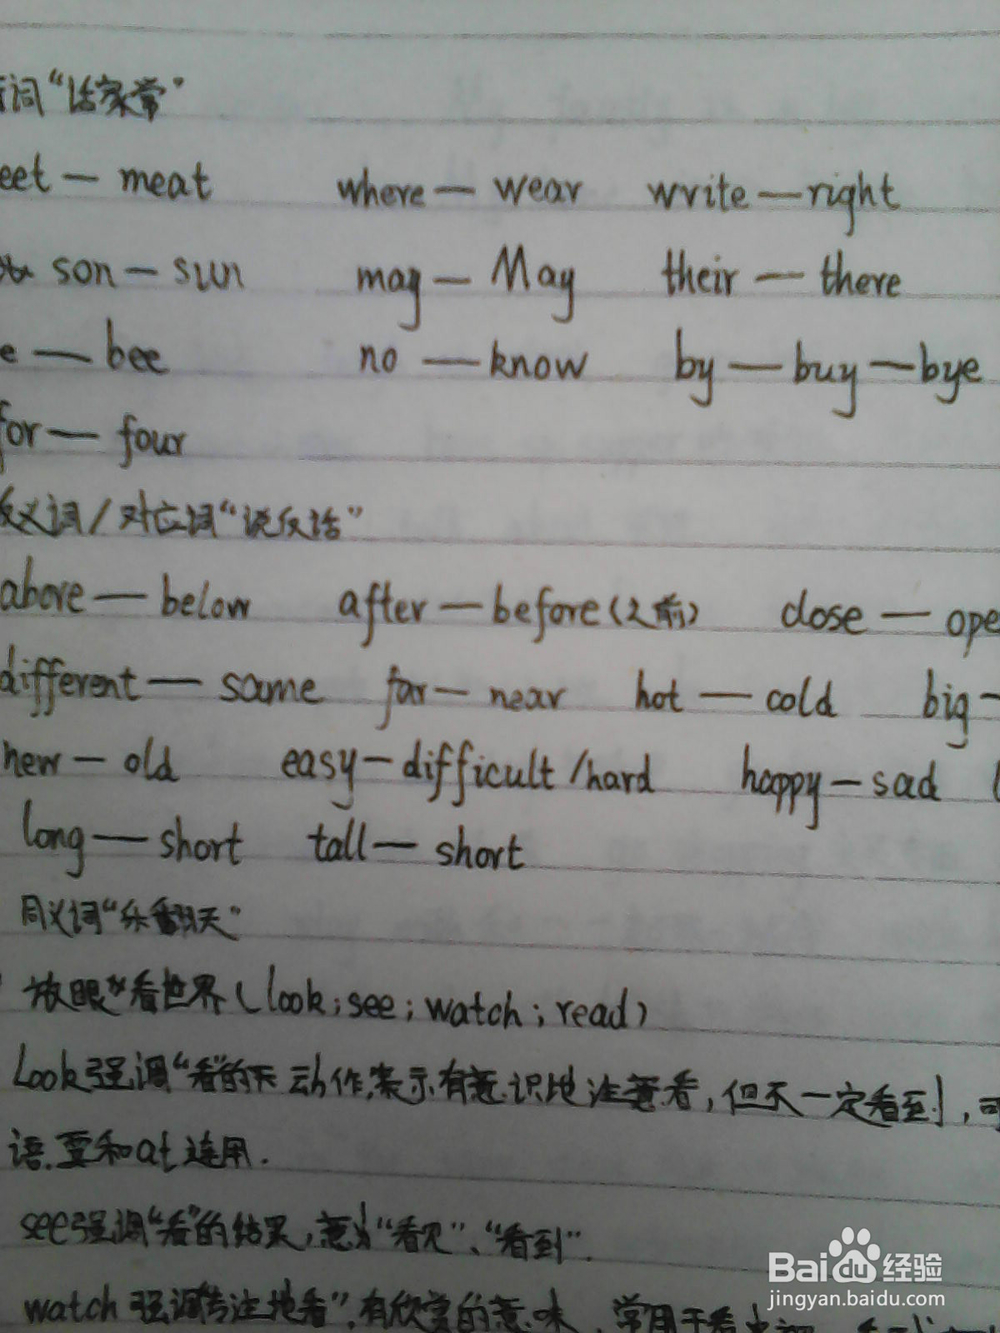 词“话家常”
eet — meat where — wear write — right
son — sun may — May their — there
e — bee no — know by — buy — bye
for — four
反义词/对应词“说反话”
above — below after — before(之前) close — ope
different — same far — near hot — cold big —
new — old easy — difficult/hard happy — sad
long — short tall — short
同义词“乐翻天”
放眼“看世界(look; see; watch; read)
Look强调“看”的 动作,表示有意识地注意看,但不一定看到,可
语.要和at连用.
see强调“看”的结果,意为“看见”、“看到”.
watch强调“专注地看”,有欣赏的意味,常用于看
Baidu经验
jingyan.baidu.com